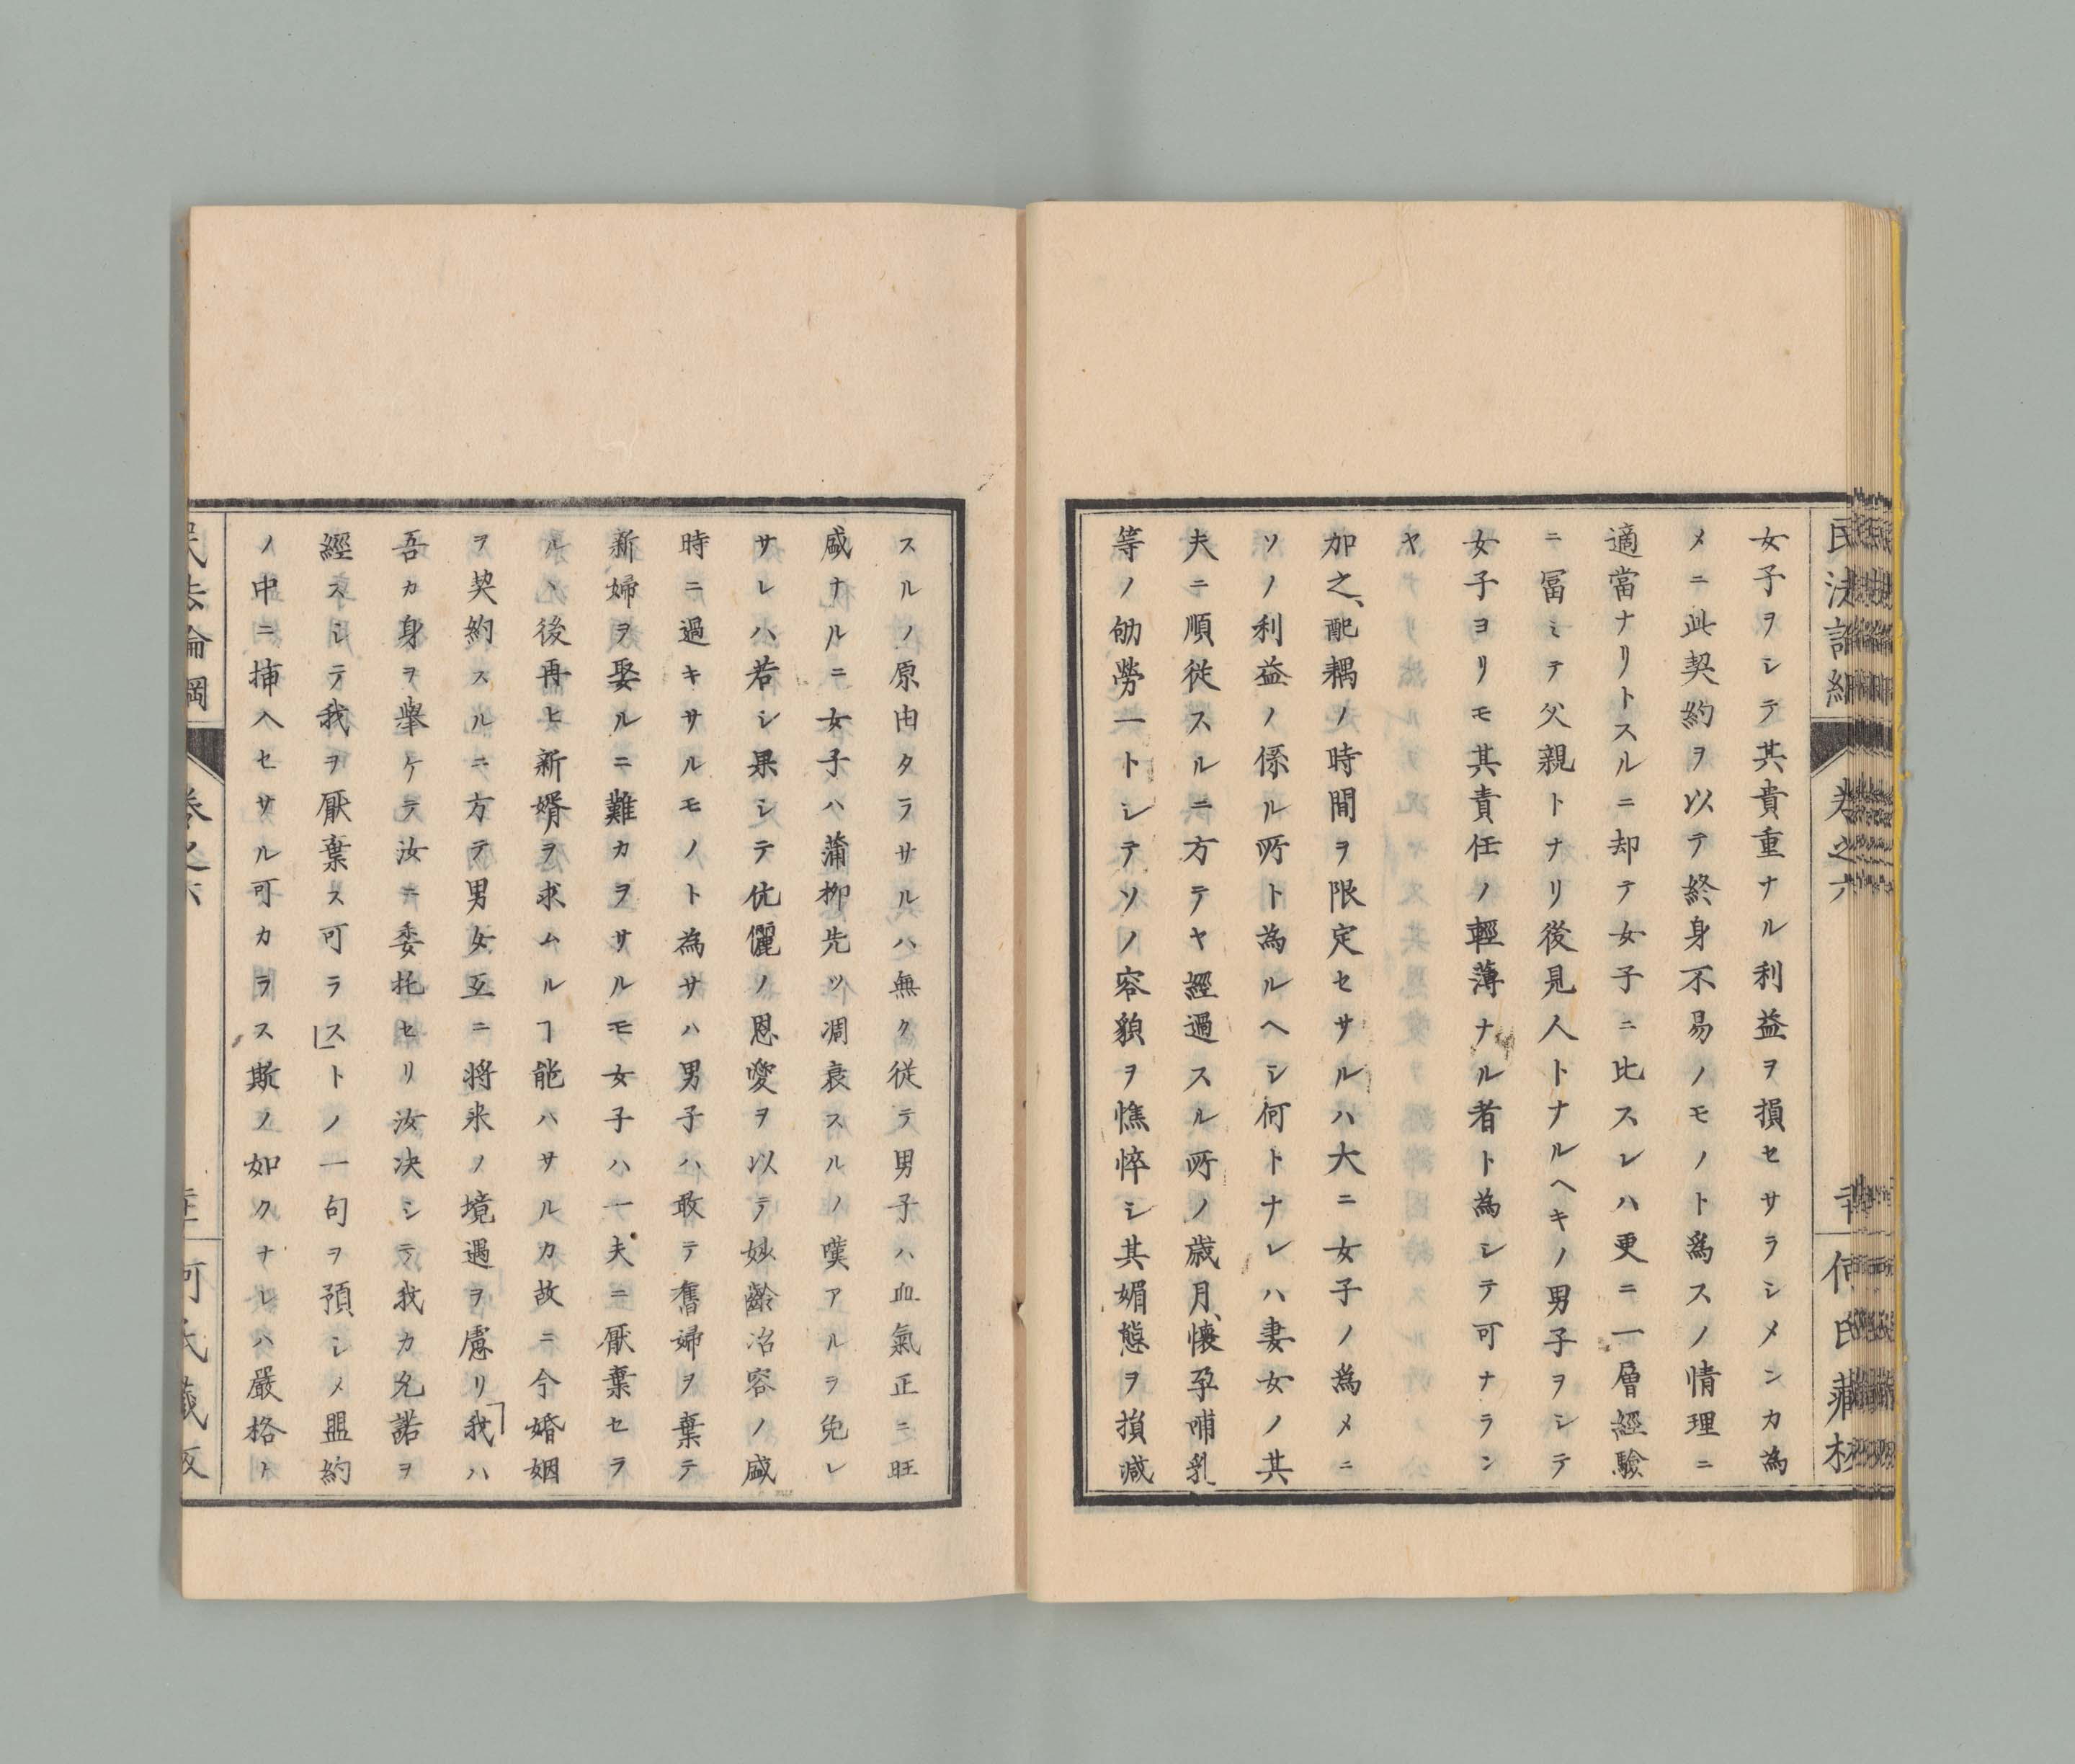 女子ヲシテ其貴重ナル利益ヲ損セサラシメンカ為
メニ此契約ヲ以テ終身不易ノモノト為スノ情理ニ
適當ナリトスルニ却テ女子ニ比スレハ更ニ一層經驗
ニ冨ミテ父親トナリ後見人トナルヘキノ男子ヲシテ
女子ヨリモ其責任ノ輕薄ナル者ト為シテ可ナラン
ヤ
加之、配耦ノ時間ヲ限定セサルハ大ニ女子ノ為メニ
ソノ利益ノ係ル所ト為ルヘシ何トナレハ妻女ノ其
夫ニ順従スルニ方テヤ經過スル所ノ歳月、懐孕哺乳
等ノ劬勞一トシテソノ容貌ヲ憔悴シ其媚態ヲ損減
スルノ原由タラサルハ無ク従テ男子ハ血氣正ニ旺
盛ナルニ女子ハ蒲柳先ツ凋衰スルノ嘆アルヲ免レ
サレハ若シ果シテ伉儷ノ恩愛ヲ以テ妙齢冶容ノ盛
時ニ過キサルモノト為サハ男子ハ敢テ舊婦ヲ棄テ
新婦ヲ娶ルニ難カラサルモ女子ハ一夫ニ厭棄セラ
ルヽ後再ヒ新婿ヲ求ムルヿ能ハサルカ故ニ今婚姻
ヲ契約スルニ方テ男女互ニ将来ノ境遇ヲ慮リ「我ハ
吾カ身ヲ擧ケテ汝ニ委托セリ汝决シテ我カ允諾ヲ
經スシテ我ヲ厭棄ス可ラス」トノ一句ヲ預シメ盟約
ノ中ニ挿入セサル可カラス斯ノ如クナレハ嚴格ト
民法論綱
卷之六
何氏藏板